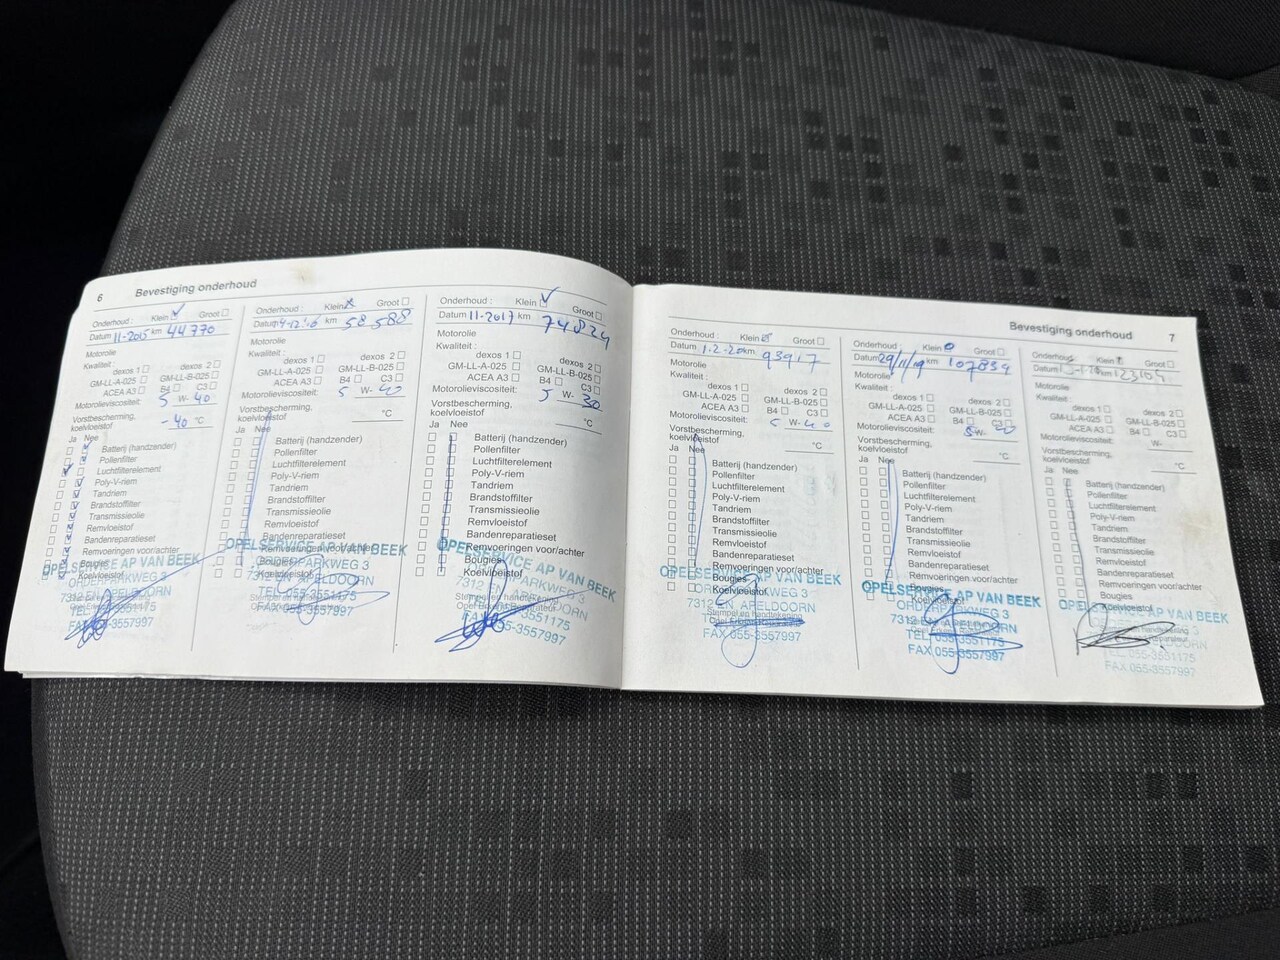 6 Bevestiging onderhoud
Onderhoud : Klein Groot
Datum 11-2015 km 44770
Motorolie
Kwaliteit :
dexos 1 dexos 2
GM-LL-A-025 GM-LL-B-025
ACEA A3 B4 C3
Motorolieviscositeit: 5 W- 40
Vorstbescherming,
koelvloeistof -40 °C
Ja Nee
Batterij (handzender)
Pollenfilter
Luchtfilterelement
Poly-V-riem
Tandriem
Brandstoffilter
Transmissieolie
Remvloeistof
Bandenreparatieset
Remvoeringen voor/achter
Bougies
Koelvloeistof
OPELSERVICE AP VAN BEEK
ORDERPARKWEG 3
7312 EN APELDOORN
TEL. 055-3551175
FAX 055-3557997
Onderhoud : Klein Groot
Datum km 58 588
Motorolie
Kwaliteit :
dexos 1 dexos 2
GM-LL-A-025 GM-LL-B-025
ACEA A3 B4 C3
Motorolieviscositeit: 5 W-
Vorstbescherming,
koelvloeistof °C
Ja Nee
Batterij (handzender)
Pollenfilter
Luchtfilterelement
Poly-V-riem
Tandriem
Brandstoffilter
Transmissieolie
Remvloeistof
Bandenreparatieset
Remvoeringen voor/achter
Bougies
Koelvloeistof
OPELSERVICE AP VAN BEEK
ORDERPARKWEG 3
7312 EN APELDOORN
TEL. 055-3551175
FAX 055-3557997
Onderhoud : Klein Groot
Datum 11-2017 km 74824
Motorolie
Kwaliteit :
dexos 1 dexos 2
GM-LL-A-025 GM-LL-B-025
ACEA A3 B4 C3
Motorolieviscositeit: 5 W- 30
Vorstbescherming,
koelvloeistof °C
Ja Nee
Batterij (handzender)
Pollenfilter
Luchtfilterelement
Poly-V-riem
Tandriem
Brandstoffilter
Transmissieolie
Remvloeistof
Bandenreparatieset
Remvoeringen voor/achter
Bougies
Koelvloeistof
OPELSERVICE AP VAN BEEK
ORDERPARKWEG 3
7312 EN APELDOORN
TEL. 055-3551175
FAX 055-3557997
Bevestiging onderhoud 7
Onderhoud : Klein Groot
Datum km 93917
Motorolie
Kwaliteit :
dexos 1 dexos 2
GM-LL-A-025 GM-LL-B-025
ACEA A3 B4 C3
Motorolieviscositeit: 5 W- 40
Vorstbescherming,
koelvloeistof °C
Ja Nee
Batterij (handzender)
Pollenfilter
Luchtfilterelement
Poly-V-riem
Tandriem
Brandstoffilter
Transmissieolie
Remvloeistof
Bandenreparatieset
Remvoeringen voor/achter
Bougies
Koelvloeistof
OPELSERVICE AP VAN BEEK
ORDERPARKWEG 3
7312 EN APELDOORN
Stempel en handtekening
FAX 055-3557997
Onderhoud : Klein Groot
Datum 29/11/19 km 107839
Motorolie
Kwaliteit :
dexos 1 dexos 2
GM-LL-A-025 GM-LL-B-025
ACEA A3 B4 C3
Motorolieviscositeit: 5 W-
Vorstbescherming,
koelvloeistof °C
Ja Nee
Batterij (handzender)
Pollenfilter
Luchtfilterelement
Poly-V-riem
Tandriem
Brandstoffilter
Transmissieolie
Remvloeistof
Bandenreparatieset
Remvoeringen voor/achter
Bougies
Koelvloeistof
OPELSERVICE AP VAN BEEK
ORDERPARKWEG 3
7312 EN APELDOORN
TEL. 055-3551175
FAX 055-3557997
Onderhoud : Klein Groot
Datum km
Motorolie
Kwaliteit :
dexos 1 dexos 2
GM-LL-A-025 GM-LL-B-025
ACEA A3 B4 C3
Motorolieviscositeit: W-
Vorstbescherming,
koelvloeistof °C
Ja Nee
Batterij (handzender)
Pollenfilter
Luchtfilterelement
Poly-V-riem
Tandriem
Brandstoffilter
Transmissieolie
Remvloeistof
Bandenreparatieset
Remvoeringen voor/achter
Bougies
Koelvloeistof
OPELSERVICE AP VAN BEEK
ORDERPARKWEG 3
7312 EN APELDOORN
TEL. 055-3551175
FAX 055-3557997